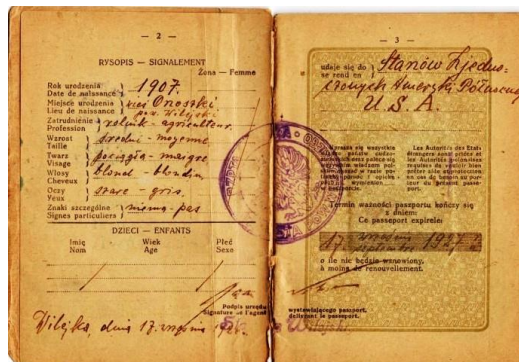 — 2 —
RYSOPIS — SIGNALEMENT
Żona — Femme
Rok urodzenia
Date de naissance
1907.
Miejsce urodzenia
Lieu de naissance
wieś
Zatrudnienie
Profession
rolnik - agriculteur
Wzrost
Taille
średni - moyenne
Twarz
Visage
pociągła - maigre
Włosy
Cheveux
blond - blonds
Oczy
Yeux
szare - gris
Znaki szczególne
Signes particuliers
pas
DZIECI — ENFANTS
Imię Wiek Płeć
Nom Age Sexe
Podpis urzędu
Signature de l'agent
Wilejka, dnia 17.
— 3 —
udaje się do
se rend en
Stanów Zjedno-
czonych Ameryki Północnej
U.S.A.
Uprasza się wszystkie
Les Autorités des Etats
étrangers sont priées et
les Autorités polonaises
requises de vouloir bien
prêter aide et protection
en cas de besoin au por-
teur du présent passe-
port.
Termin ważności paszportu kończy się
z dniem:
Ce passeport expire le:
17
o ile nie będzie wznowiony,
à moins de renouvellement.
wystawiającego paszport.
délivrant le passeport.